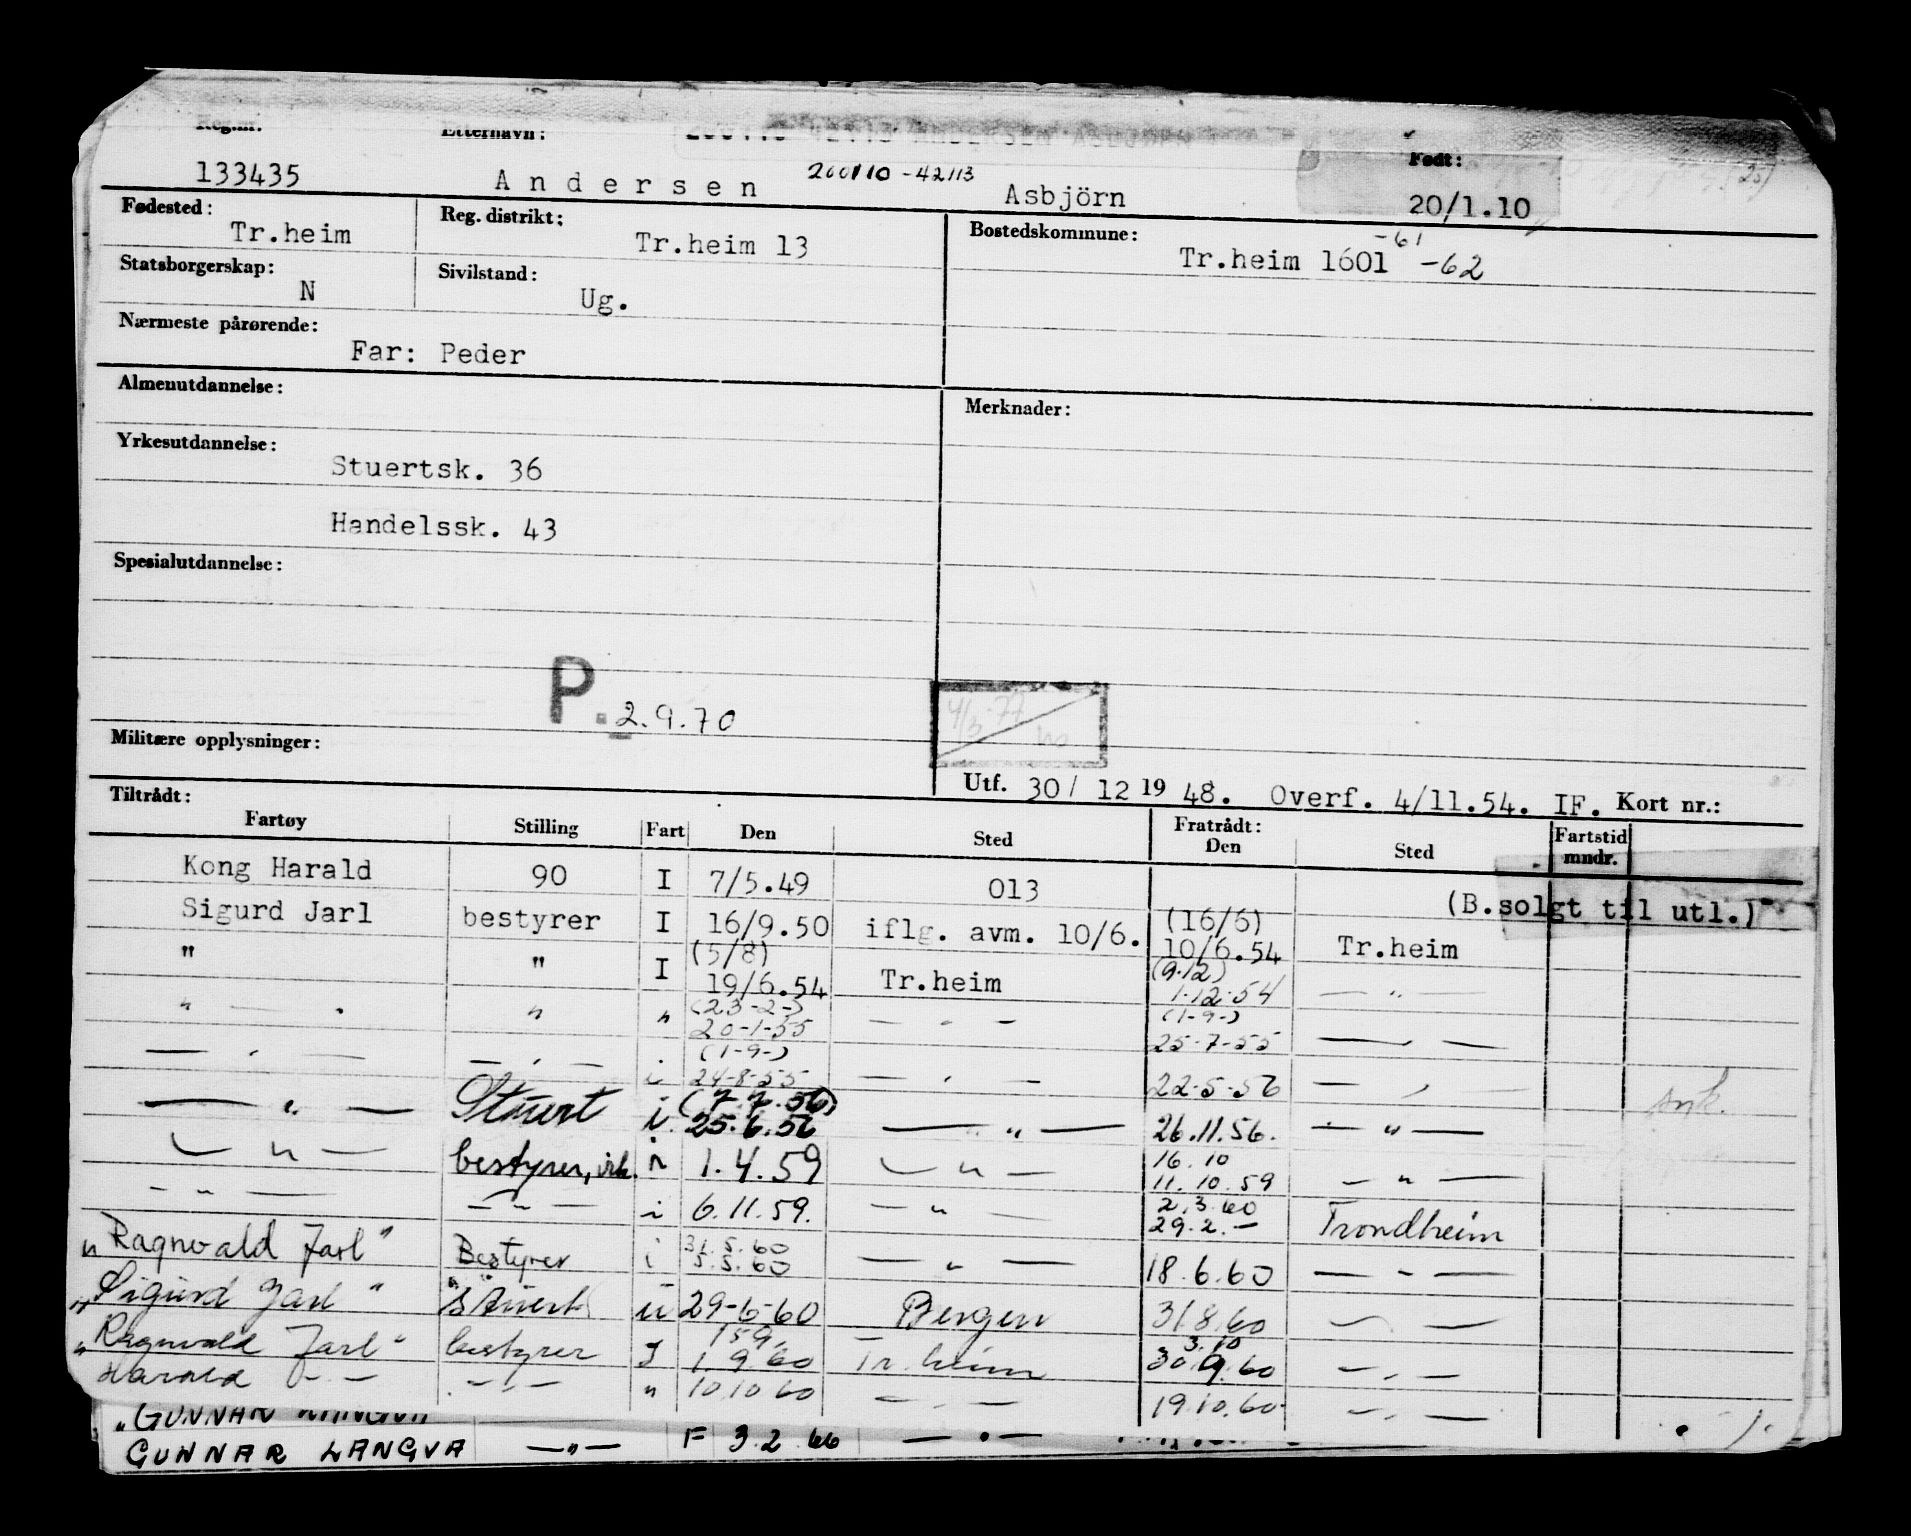 Reg.nr. Etternavn: Født:
133435 Andersen 200110-42113 Asbjörn 20/1.10
Fødested: Tr.heim Reg. distrikt: Tr.heim 13 Bostedskommune: Tr.heim 1601 -61 -62
Statsborgerskap: N Sivilstand: Ug.
Nærmeste pårørende: Far: Peder
Almenutdannelse: Merknader:
Yrkesutdannelse: Stuertsk. 36
Handelssk. 43
Spesialutdannelse:
P. 2.9.70
Militære opplysninger:
Utf. 30/ 12 19 48. Overf. 4/11.54. IF. Kort nr.:
Tiltrådt: Fratrådt:
Fartøy Stilling Fart Den Sted Den Sted Fartstid mndr.
Kong Harald 90 I 7/5.49 013
(B.solgt til utl.)
Sigurd Jarl bestyrer I 16/9.50 iflg. avm. 10/6. (16/6) 10/6.54 Tr.heim
" " I (5/8) 19/6.54 Tr.heim (9.12) 1.12.54 — " —
" — . " " (23-2-) 20-1-55 — " — (1-9-) 25-7-55 — " —
— " — — " — i (1-9-) 24-8-55 — " — 22-5-56 — " —
— " — Stuert i (7.7.56) 25.6.56 — " — 26.11.56. — " — ank.
— " — bestyrer, irk. " 1.4.59 — " — 16.10 11.10.59 — " —
— " — — " — i 6.11.59. — " — 2.3.60 29.2.— Trondheim
"Ragnvald Jarl" Bestyrer i 31.5.60 5.5.60 — " — 18.6.60 — " —
"Sigurd Jarl" Stuert u 29-6-60 Bergen 31 8.60 — " —
"Ragnvald Jarl" bestyrer I 1 59. 1.9.60 Tr.heim 3.10 30.9.60 — " —
Harald — " — — " — " 10.10 60 — " — 19.10.60 — " —
"GUNNAR LANGVA
GUNNAR LANGVA — " — F 3.2.66 — " —